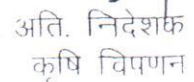 अति. निदेशक
कृषि विपणन